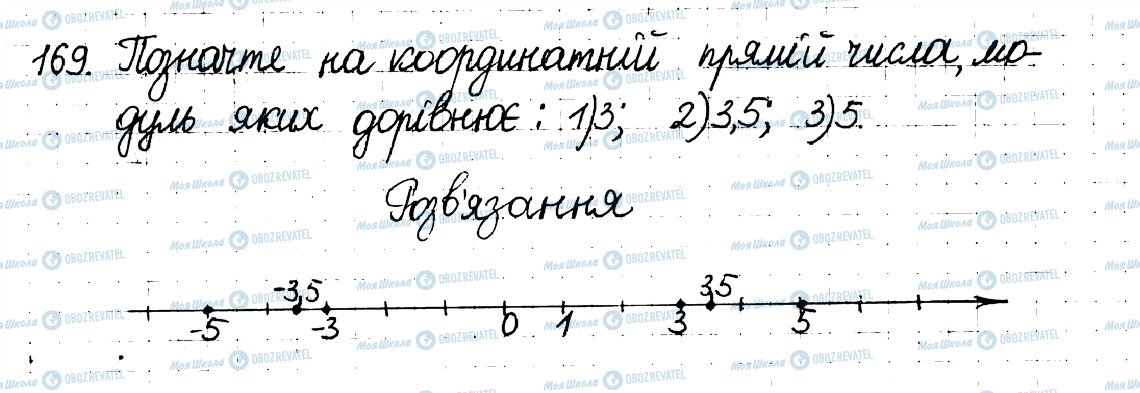 169. Позначте на координатній прямій числа, мо-
дуль яких дорівнює: 1) 3; 2) 3,5; 3) 5.
Розв'язання
-3,5 3,5
-5 -3 0 1 3 5
Моя Школа OBOZREVATEL